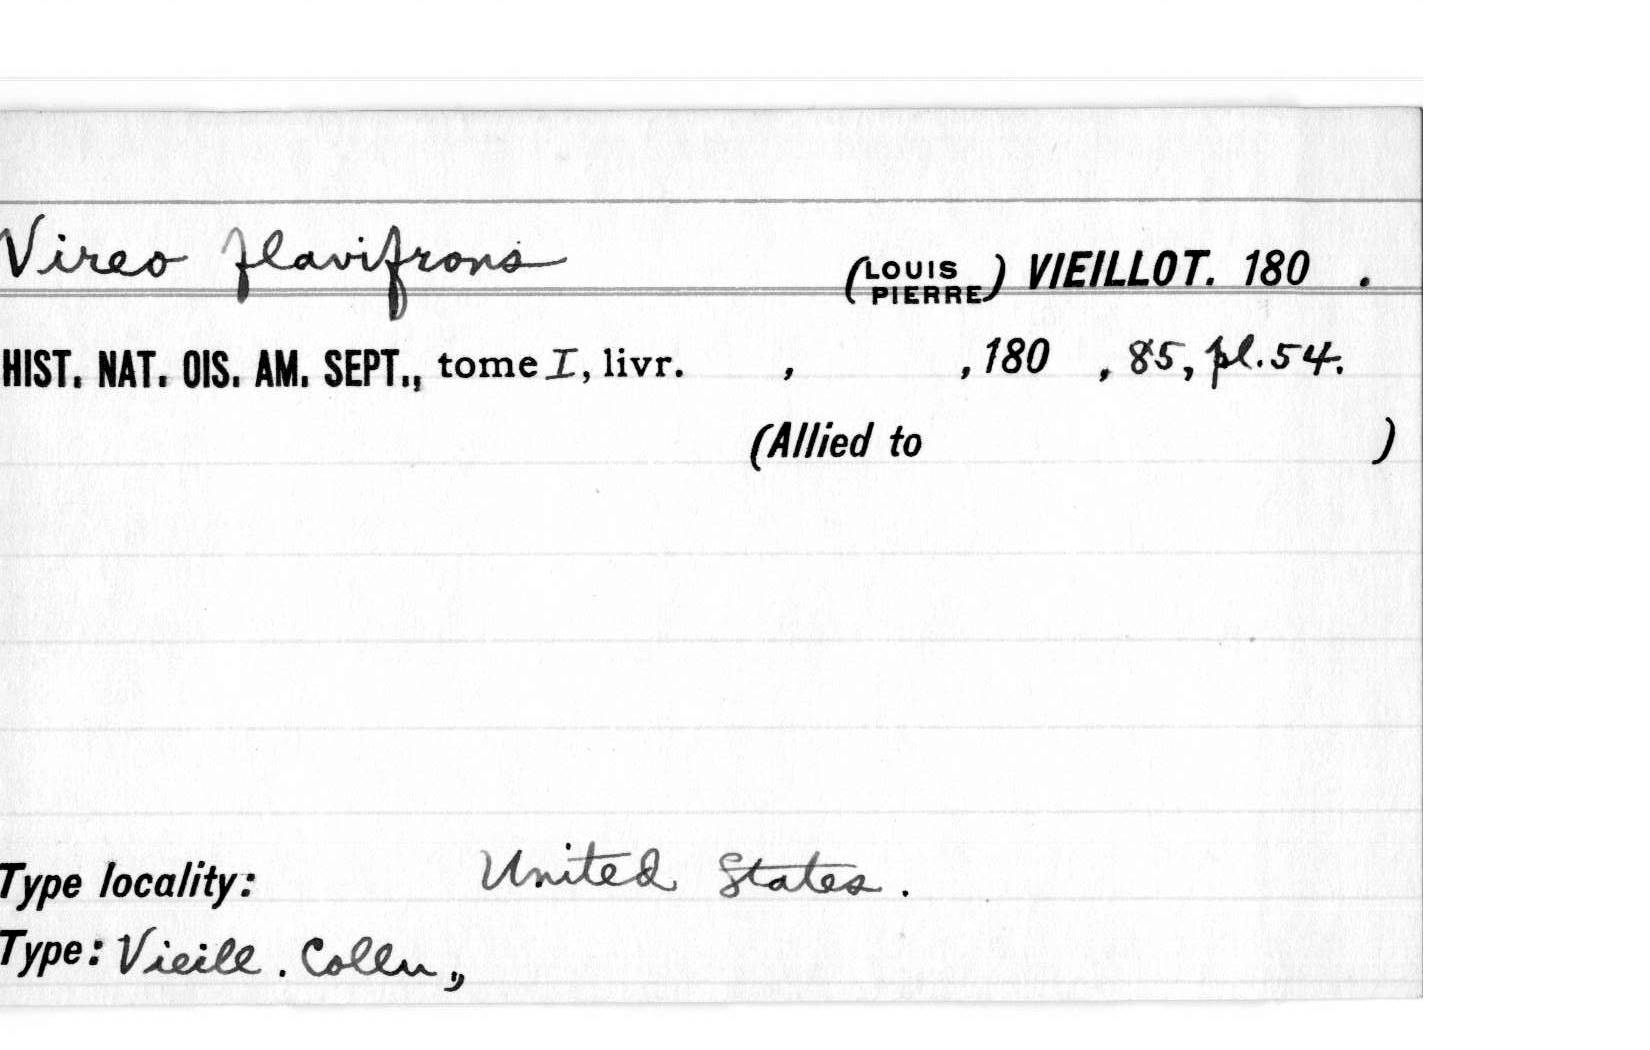 Vireo flavifrons (LOUIS PIERRE) VIEILLOT. 180 .
HIST. NAT. OIS. AM. SEPT., tome I, livr. , , 180 , 85, pl. 54.
(Allied to )
Type locality: United States.
Type: Vieill. Colln.,